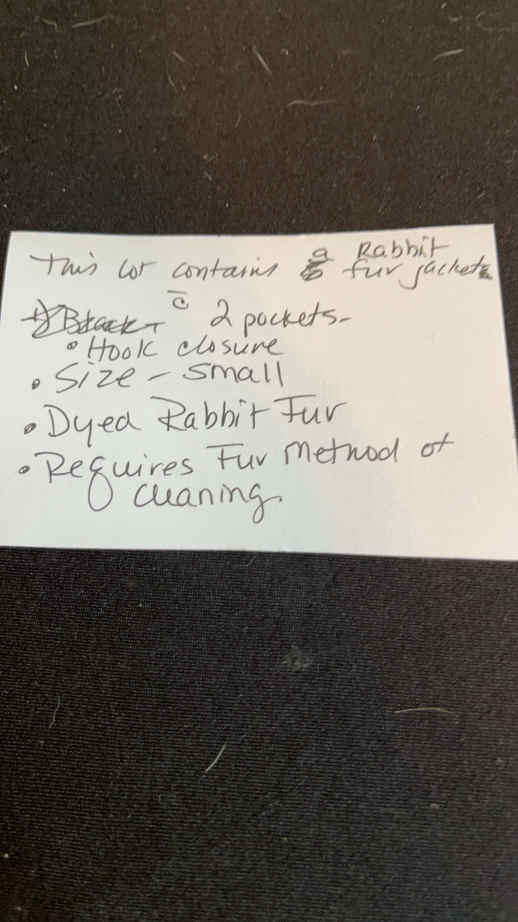 This lot contains a Rabbit
fur jacket
c̄ 2 pockets-
• Hook closure
• Size - small
• Dyed Rabbit Fur
• Requires Fur Method of
cleaning.